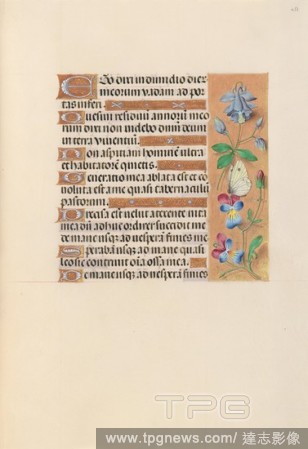 Ego dixi in dimidio dier
meorum vadam ad por
tas inferi.
Quesivi residuū annorū meo
rum dixi non videbo dnm̄ deum
in terra viventiū.
Non aspiciam hoīem ultra
et habitatorē quietis.
Generatio mea ablata est et cō
voluta est a me quasi tabernaculū
pastorum.
Precisa est velut a texente vita
mea dū adhuc ordirer succidit me
de mane usque ad vesperā finies me
Sperabā usque ad mane quasi
leo sic contrivit oīa ossa mea.
De mane usque ad vesperā finies
TPG
www.tpgnews.com/ 達志影像